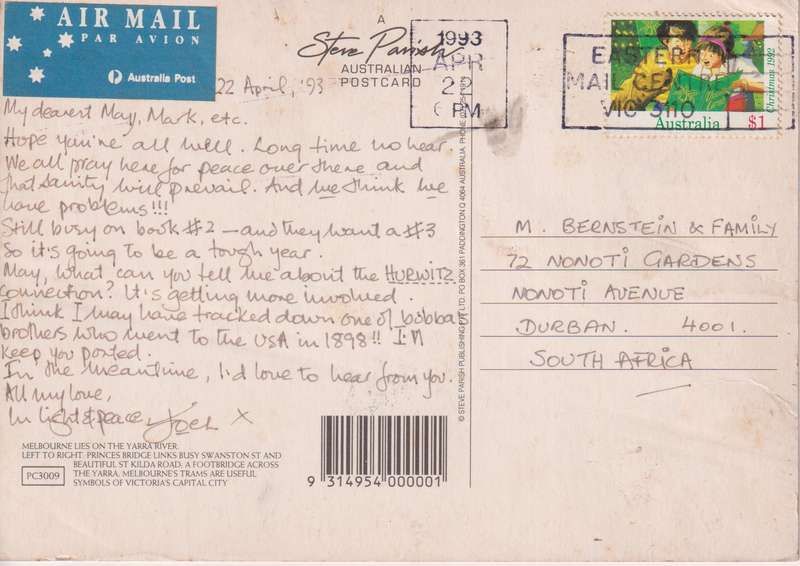 AIR MAIL
PAR AVION
Australia Post
A
Steve Parish
AUSTRALIAN
POSTCARD
1993
APR
22
6 PM
EASTERN
MAIL CE
VIC 3110
Christmas 1992
Australia $1
22 April, '93
My dearest May, Mark, etc.
Hope you're all well. Long time no hear.
We all pray here for peace over there and
that sanity will prevail. And we think we
have problems!!!
Still busy on book #2 - and they want a #3
So it's going to be a tough year.
May, what can you tell me about the HURWITZ
connection? It's getting more involved.
I think I may have tracked down one of bobba
brothers who went to the USA in 1898!! I'll
keep you posted.
In the meantime, I'd love to hear from you.
All my love,
In light & peace, Joel X
M. BERNSTEIN & FAMILY
72 NONOTI GARDENS
NONOTI AVENUE
DURBAN. 4001.
SOUTH AFRICA
© STEVE PARISH PUBLISHING PTY. LTD. PO BOX 361 PADDINGTON Q 4064 AUSTRALIA. PHONE
MELBOURNE LIES ON THE YARRA RIVER.
LEFT TO RIGHT: PRINCES BRIDGE LINKS BUSY SWANSTON ST AND
BEAUTIFUL ST KILDA ROAD; A FOOTBRIDGE ACROSS
THE YARRA. MELBOURNE'S TRAMS ARE USEFUL
SYMBOLS OF VICTORIA'S CAPITAL CITY
PC3009
9 314954 000001